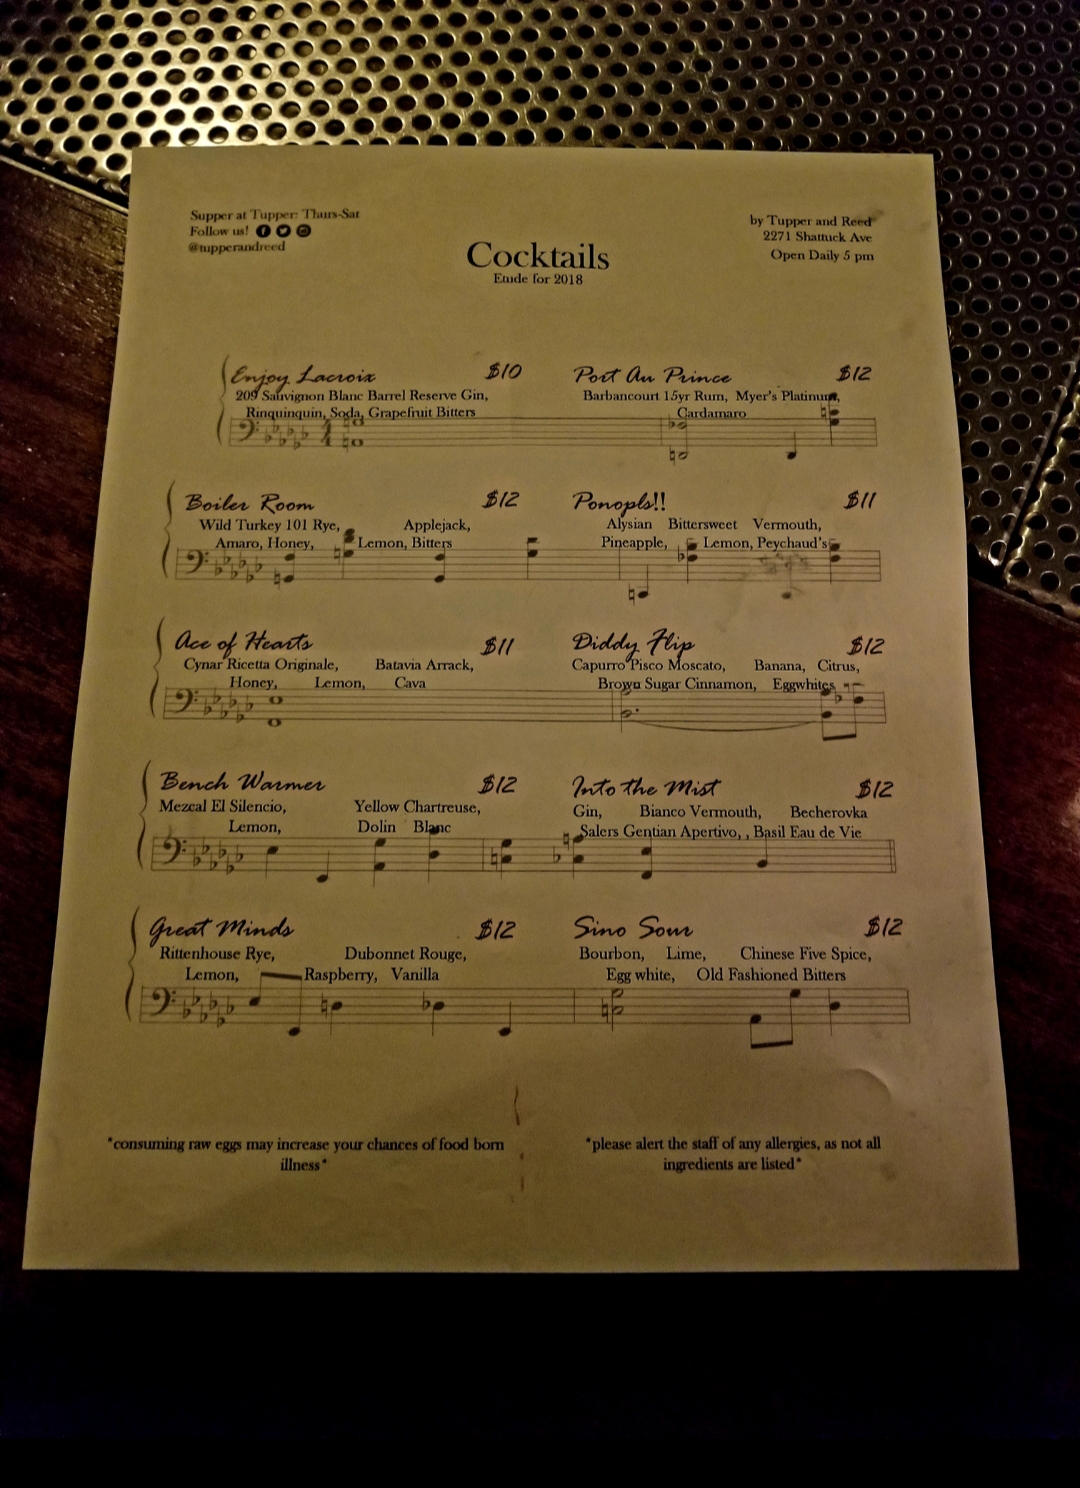 Supper at Tupper: Thurs-Sat
Follow us!
@tupperandreed
by Tupper and Reed
2271 Shattuck Ave
Open Daily 5 pm
Cocktails
Etude for 2018
Enjoy Lacroix $10
209 Sauvignon Blanc Barrel Reserve Gin,
Rinquinquin, Soda, Grapefruit Bitters
Port Au Prince $12
Barbancourt 15yr Rum, Myer's Platinum,
Cardamaro
Boiler Room $12
Wild Turkey 101 Rye, Applejack,
Amaro, Honey, Lemon, Bitters
Ponopls!! $11
Alysian Bittersweet Vermouth,
Pineapple, Lemon, Peychaud's
Ace of Hearts $11
Cynar Ricetta Originale, Batavia Arrack,
Honey, Lemon, Cava
Diddy Flip $12
Capurro Pisco Moscato, Banana, Citrus,
Brown Sugar Cinnamon, Eggwhites
Bench Warmer $12
Mezcal El Silencio, Yellow Chartreuse,
Lemon, Dolin Blanc
Into the Mist $12
Gin, Bianco Vermouth, Becherovka
Salers Gentian Apertivo, , Basil Eau de Vie
Great Minds $12
Rittenhouse Rye, Dubonnet Rouge,
Lemon, Raspberry, Vanilla
Sino Sour $12
Bourbon, Lime, Chinese Five Spice,
Egg white, Old Fashioned Bitters
*consuming raw eggs may increase your chances of food born
illness*
*please alert the staff of any allergies, as not all
ingredients are listed*